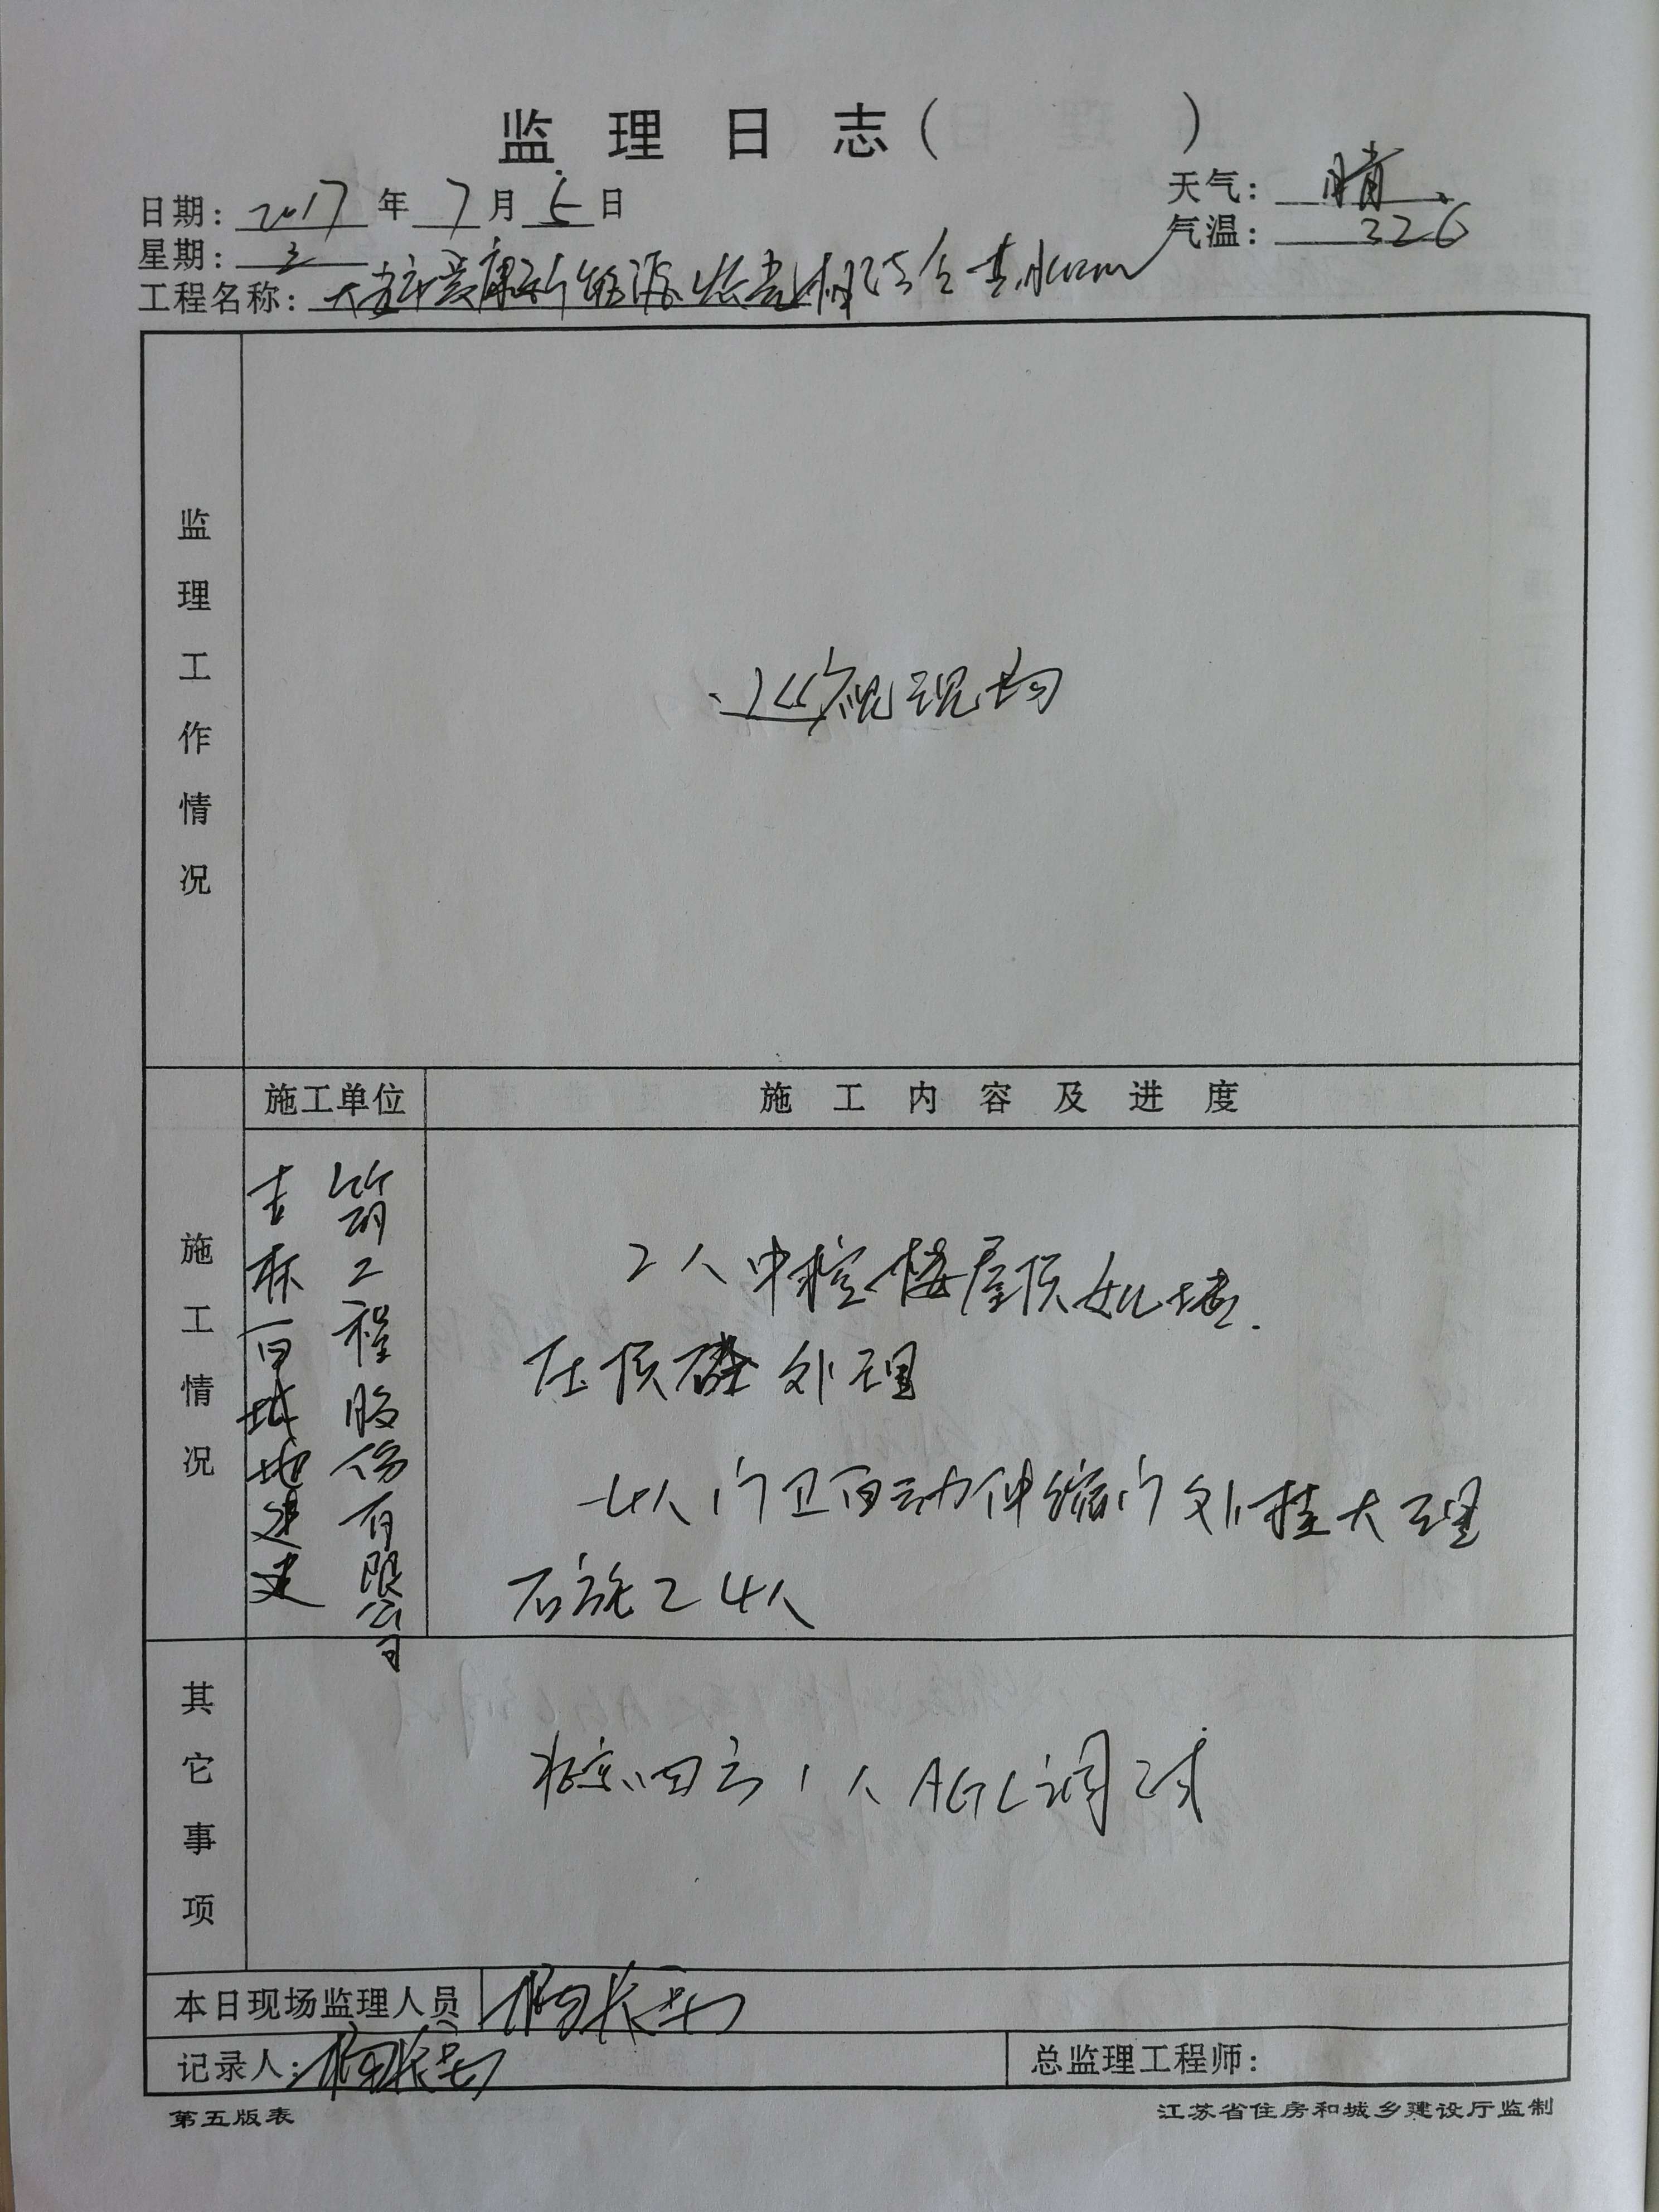 监理日志(        )
日期: 2017 年 7 月 5 日
天气: 晴
星期: 3
气温: 326
工程名称: 大安市爱康新能源
监理工作情况
巡视现场
施工单位
施工内容及进度
施工情况
吉林百城地建建
筑工程股份有限公司
2人中控楼屋顶女儿墙.
压顶砼处理
4人门卫自动伸缩门外挂大理
石施工4人
其它事项
北京四方1人AGC调试
本日现场监理人员
记录人:
总监理工程师:
第五版表
江苏省住房和城乡建设厅监制